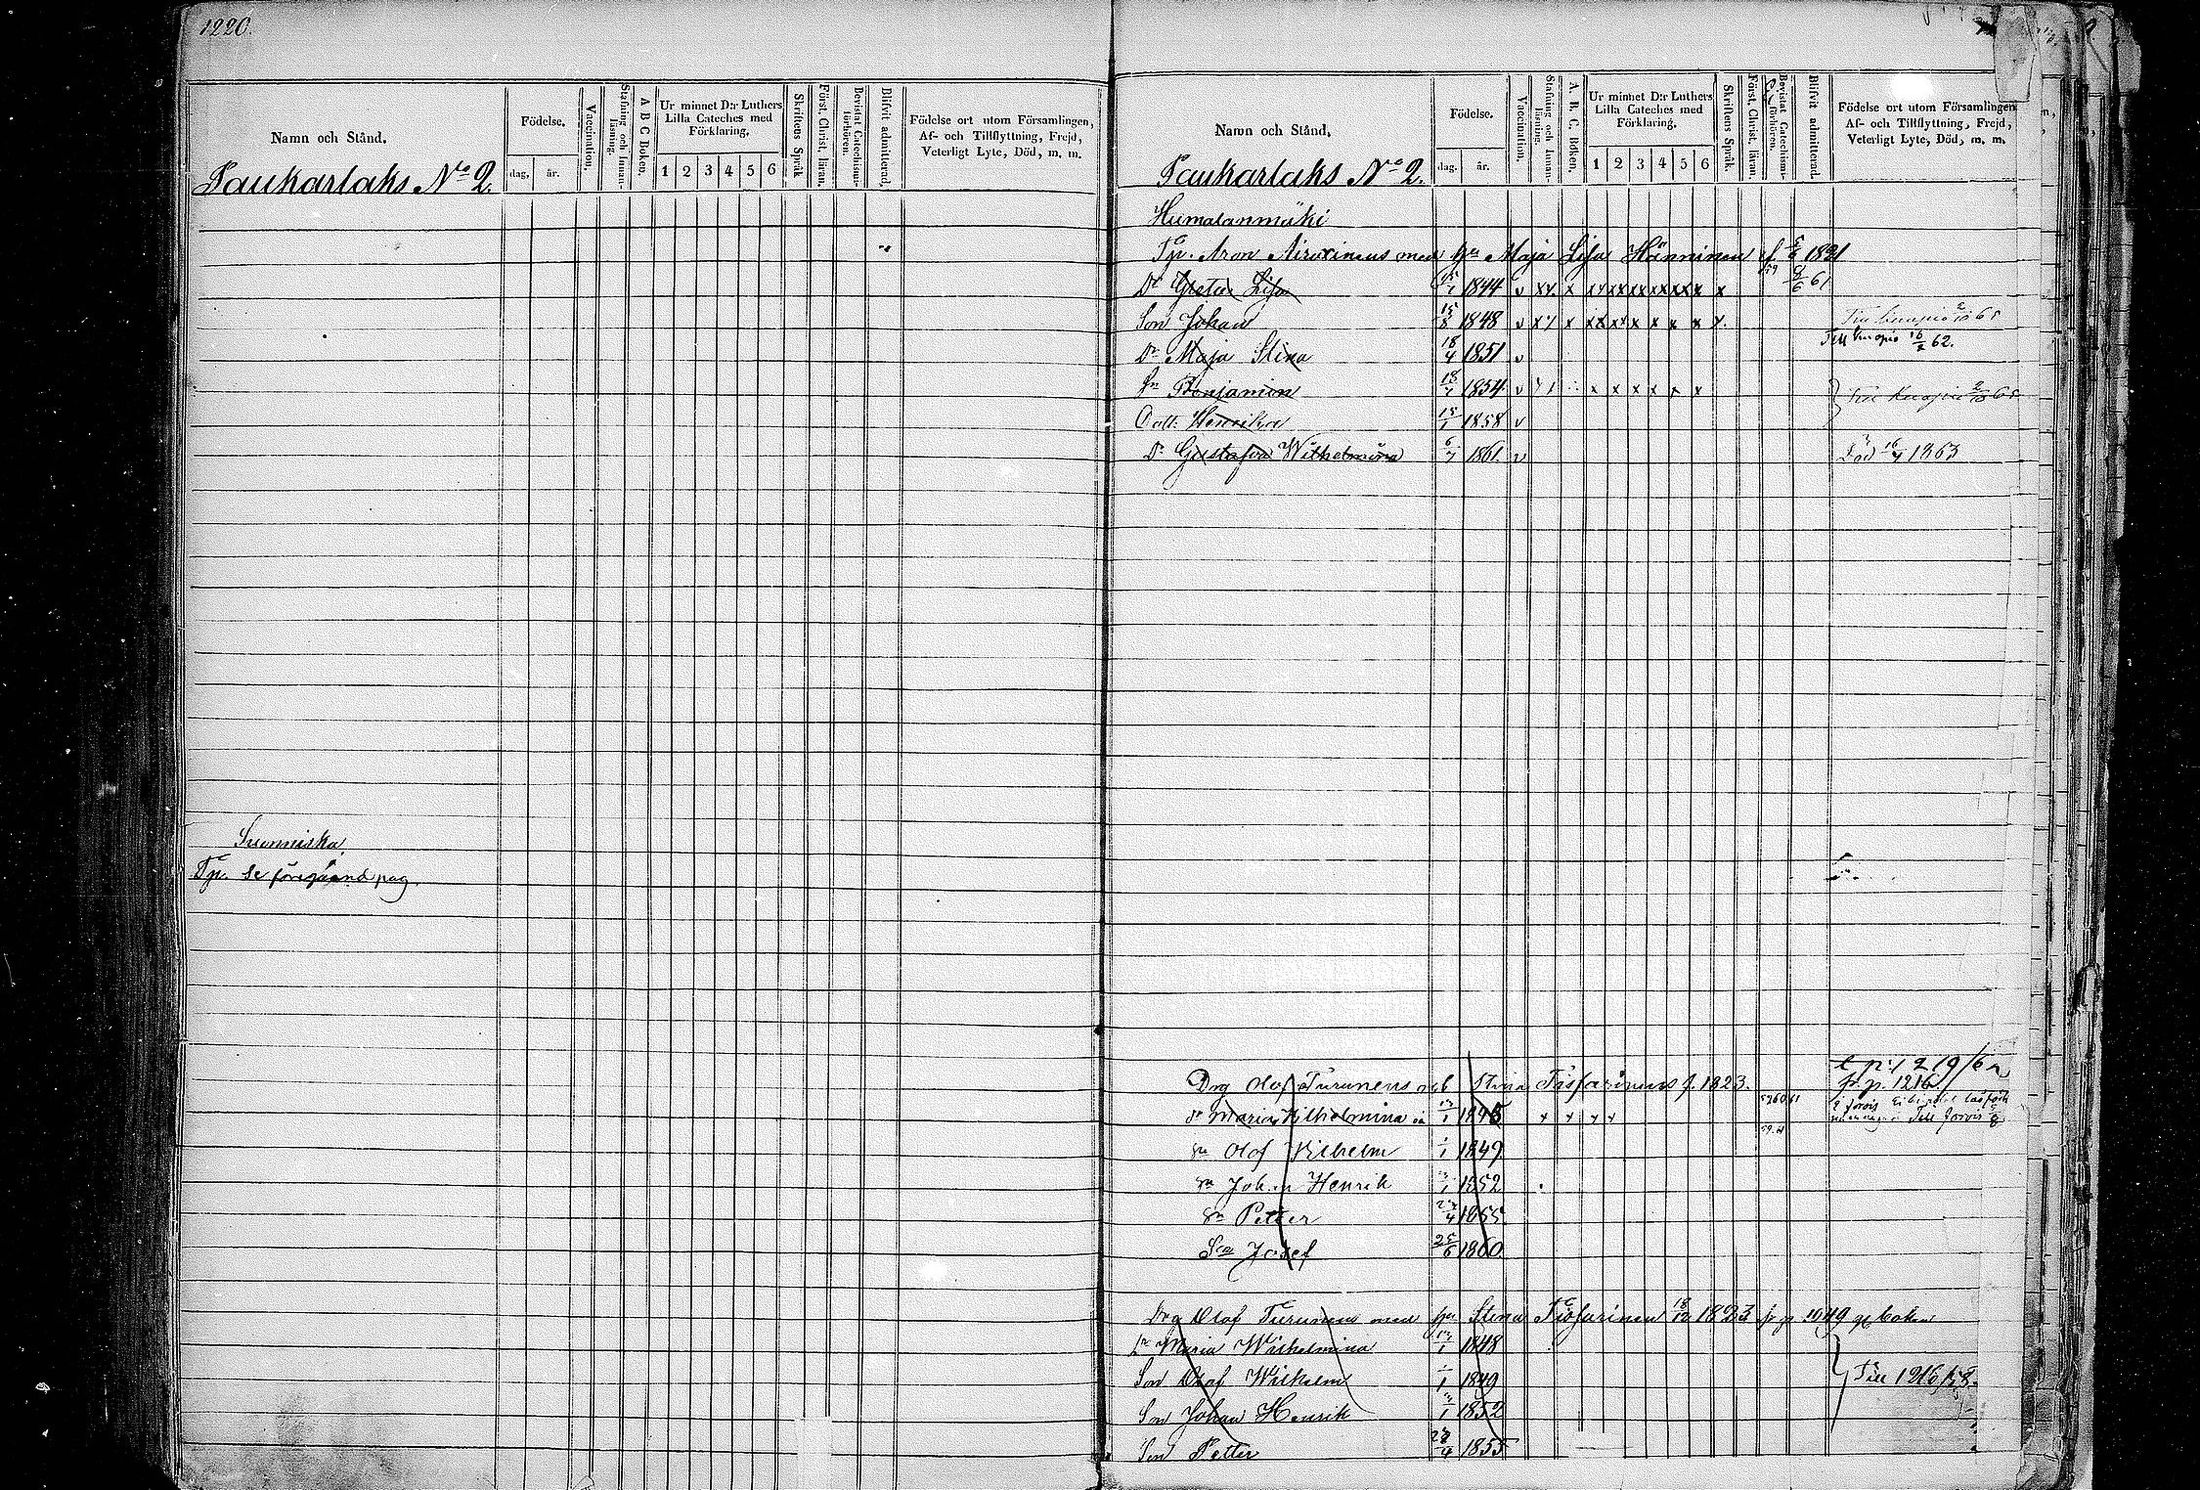 1220.
Namn och Stånd.
Födelse.
dag, år.
Vaccination.
Stafning och Innanläsning.
A B C Boken.
Ur minnet D:r Luthers Lilla Cateches med Förklaring,
1 2 3 4 5 6
Skriftens Språk
Först. Christ. läran.
Bevistat Catechismiförhören.
Blifvit admitterad,
Födelse ort utom Församlingen,
Af- och Tillflyttning, Frejd,
Veterligt Lyte, Död, m. m.
Paukarlaks No 2.
Suonniska
Tp. se föregående pag.
Namn och Stånd.
Födelse.
dag. år.
Vaccination,
Stafning och Innanläsning.
A. B. C. Boken.
Ur minnet D:r Luthers Lilla Cateches med Förklaring.
1 2 3 4 5 6
Skriftens Språk.
Först. Christ. läran.
Bevistat Catechismiförhören.
Blifvit admitterad
Födelse ort utom Församlingen
Af- och Tillflyttning, Frejd,
Veterligt Lyte, Död, m. m.
Paukarlaks No 2.
Humalanmäki
Tp. Aron med hu Maja Lisa Hänninen f. 1821
Dr Greta Lisa 1844 v xx x x x x x x x x 61
Son Johan 15/8 1848 v x x x x x x x x x 65
Dr Maja Stina 18/4 1851 v Till Kuopio 62.
Sn Benjamin 18/7 1854 v x x x x x x Till Kuopio 2/10 65
Dott. Henrika 15/1 1858 v
Dr Gustafva Wilhelmina 6/7 1861. v Död 16/4 1863
t. p. 1219/62
Drg Olof Turunens och Stina f. 1823. fr. p. 1216.
dr Maria Wilhelmina 1845 x x x x
sn Olof Wilhelm 1849
sn Johan Henrik 1852
sn Petter 23/4 1855
Son Josef 25/6 1860
Drg Olof Turunens med hu Stina 18/12 1823 fr p 1049 g. boken
Dr Maria Wilhelmina 1848
Son Olof Wilhelm 1849 Till 1216/58.
Son Johan Henrik 1852
Son Petter 23/4 1855